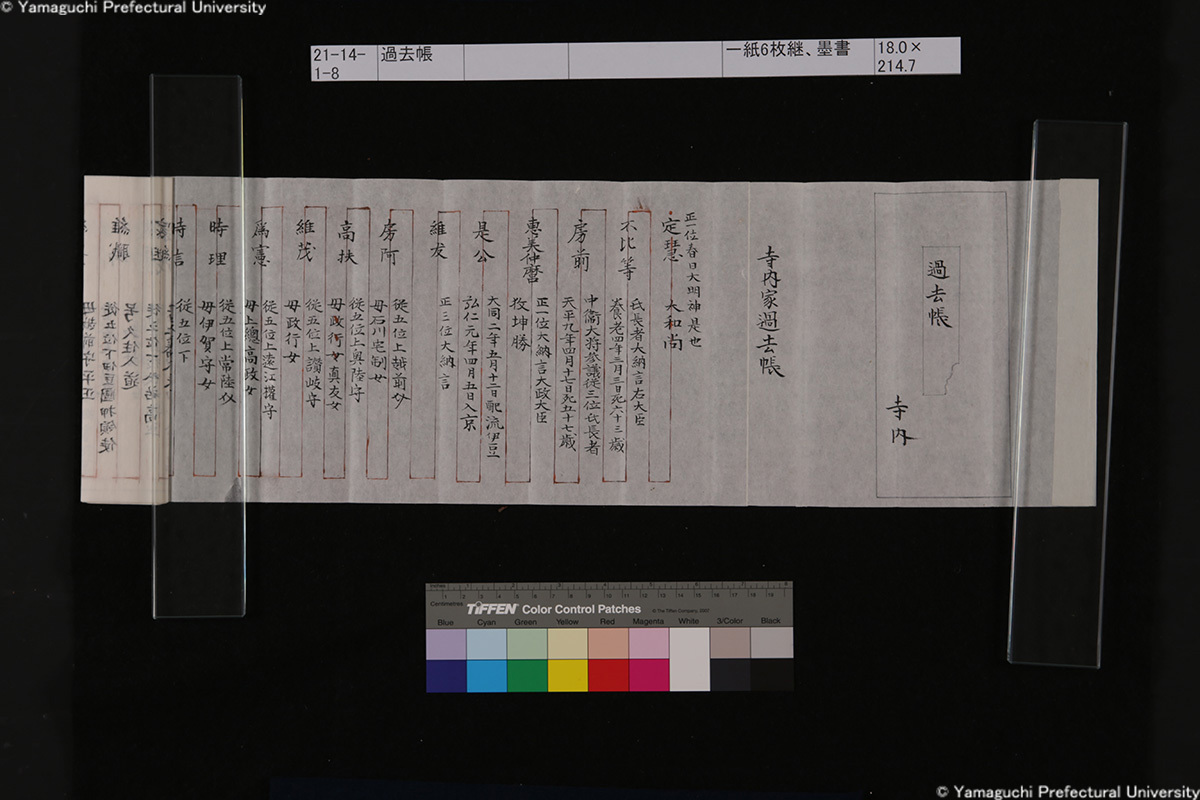 © Yamaguchi Prefectural University
21-14-1-8
過去帳
一紙6枚継、墨書
18.0×214.7
過去帳
寺内
寺内家過去帳
正一位春日大明神是也
定慧 大和尚
不比等 氏長者大納言右大臣
養老四年三月三日死六十三歳
房前 中衞大将参議従三位氏長者
天平九年四月十七日死五十七歳
恵美仲麿 正一位大納言大政大臣
牧坤勝
是公 大同二年五月十二日配流伊豆
弘仁元年四月五日入京
雄友 正三位大納言
房阿 従五位上越前
母石川宅嗣女
高扶 従五位上奥陸守
母政行女真友女
維茂 従五位上讃岐守
母政行女
為憲 従五位上遠江権守
母上總高政女
時理 従五位上常陸
母伊賀守女
時信 従五位下
Inches
Centimetres
TIFFEN Color Control Patches
© The Tiffen Company, 2007
Blue Cyan Green Yellow Red Magenta White 3/Color Black
© Yamaguchi Prefectural University